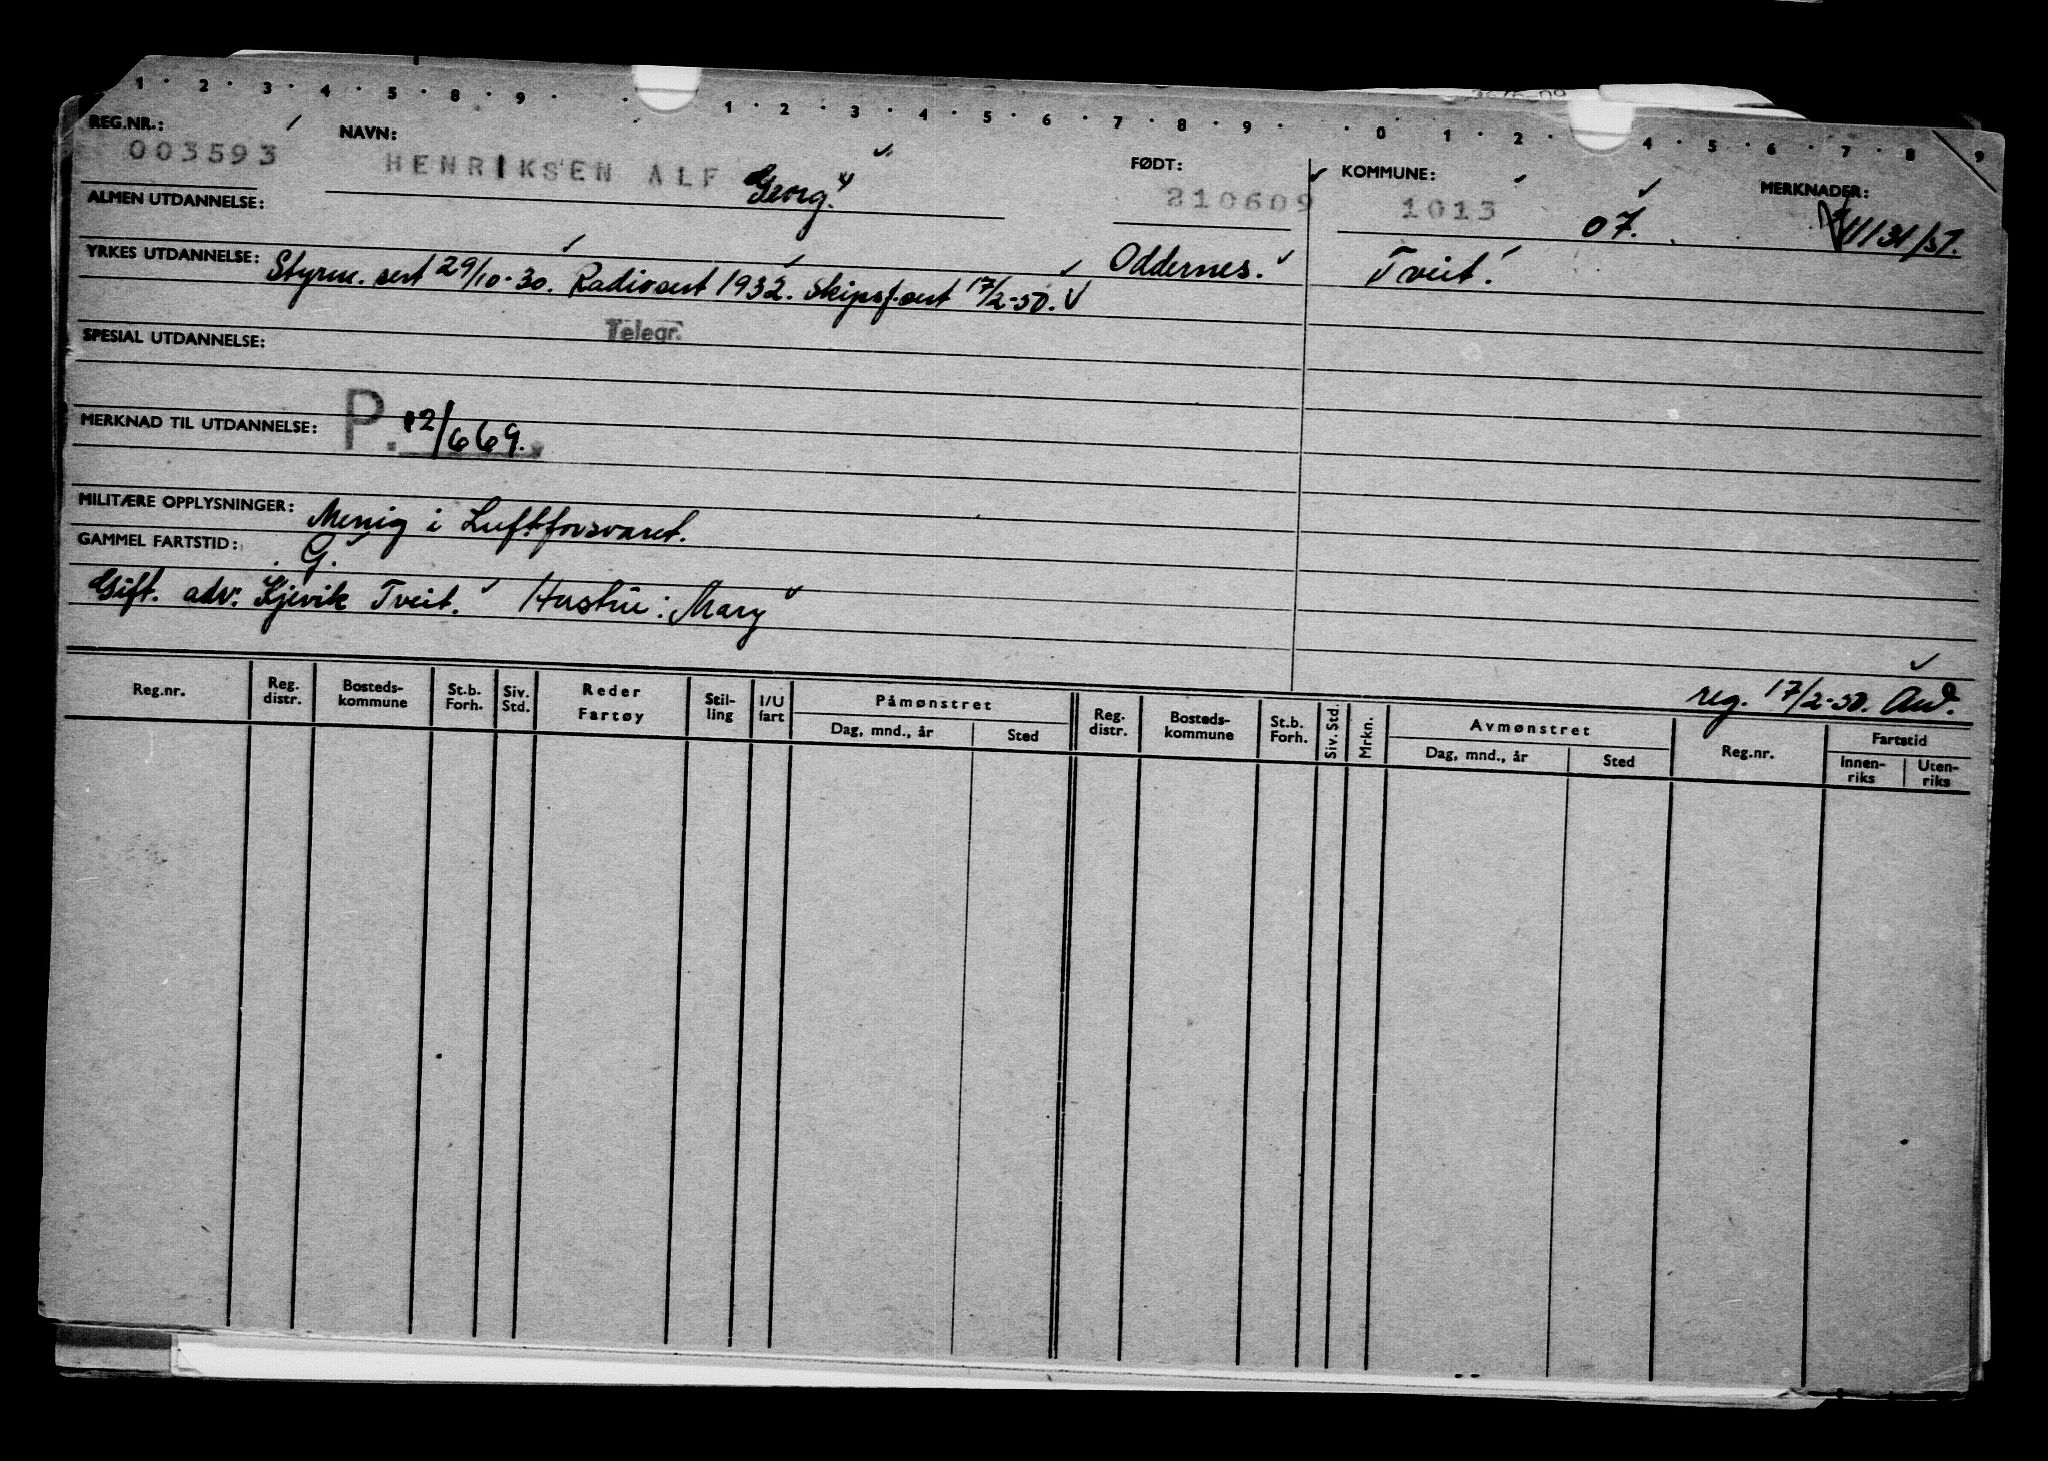 1 · 2 · 3 · 4 · 5 · 8 · 9 · · 1 · 2 · 3 · 4 · 5 · 6 · 7 · 8 · 9 · · 0 · 1 · 2 · 4 · 5 · 6 · 7 · 8 · 9
REG.NR.: NAVN: FØDT: KOMMUNE: MERKNADER:
003593 HENRIKSEN ALF Georg. 210609 1013 07.
ALMEN UTDANNELSE:
YRKES UTDANNELSE: Styrm. sert 29/10-30. Radiosert 1932. Skipsf.sert 17/2-50. Oddernes. Tveit.
Telegr.
SPESIAL UTDANNELSE:
MERKNAD TIL UTDANNELSE: P. 12/669.
MILITÆRE OPPLYSNINGER: Menig i Luftforsvaret.
GAMMEL FARTSTID: G.
Gift. adr. Kjevik Tveit. Hustru: Mary
reg. 17/2-50. And.
Reg.nr. Reg. distr. Bosteds-kommune St.b. Forh. Siv. Std. Reder Fartøy Stil-ling I/U fart Påmønstret Reg. distr. Bosteds-kommune St.b. Forh. Siv. Std. Mrkn. Avmønstret Reg.nr. Fartstid
Dag, mnd., år Sted Dag, mnd., år Sted Innen-riks Uten-riks